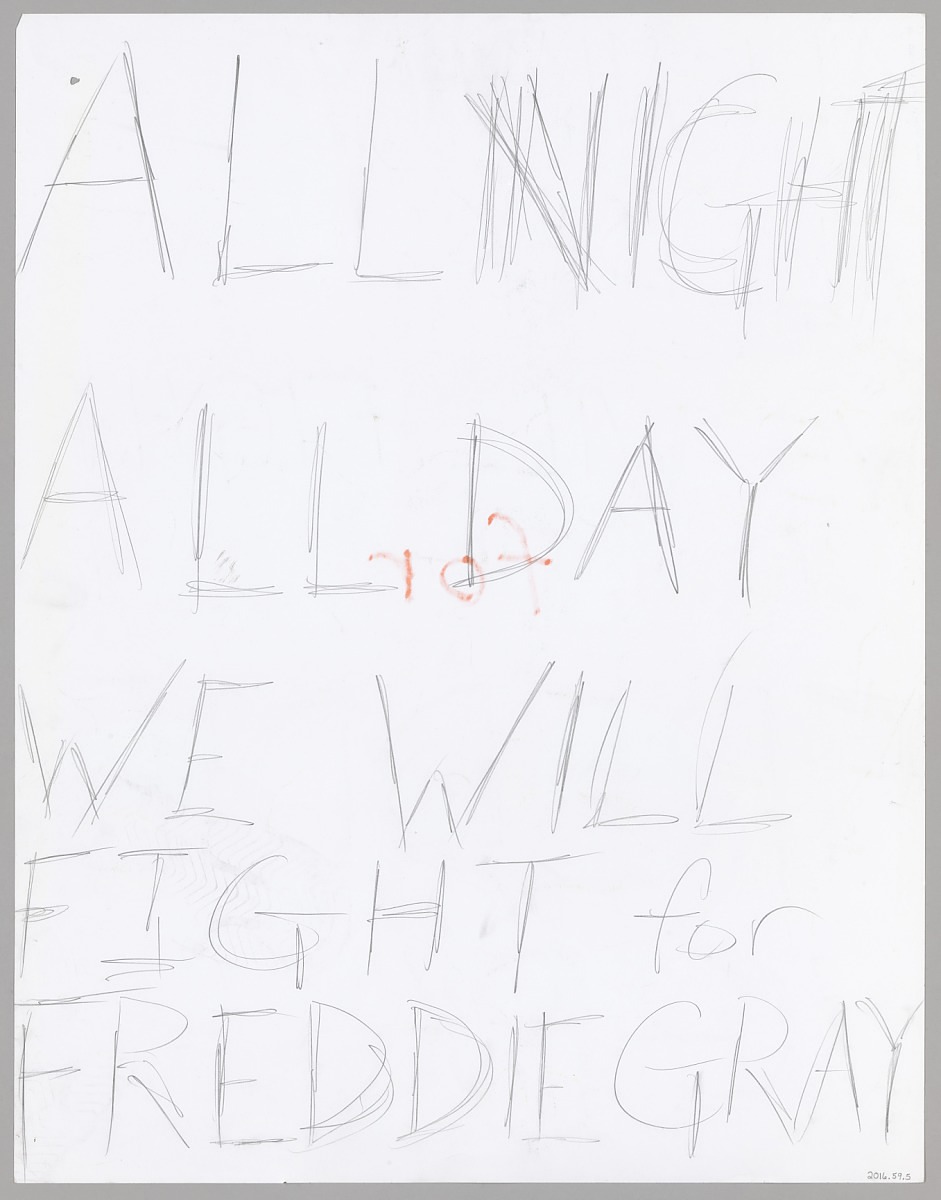 ALL NIGHT
ALL DAY
for
WE WILL
FIGHT for
FREDDIE GRAY
2016.59.5